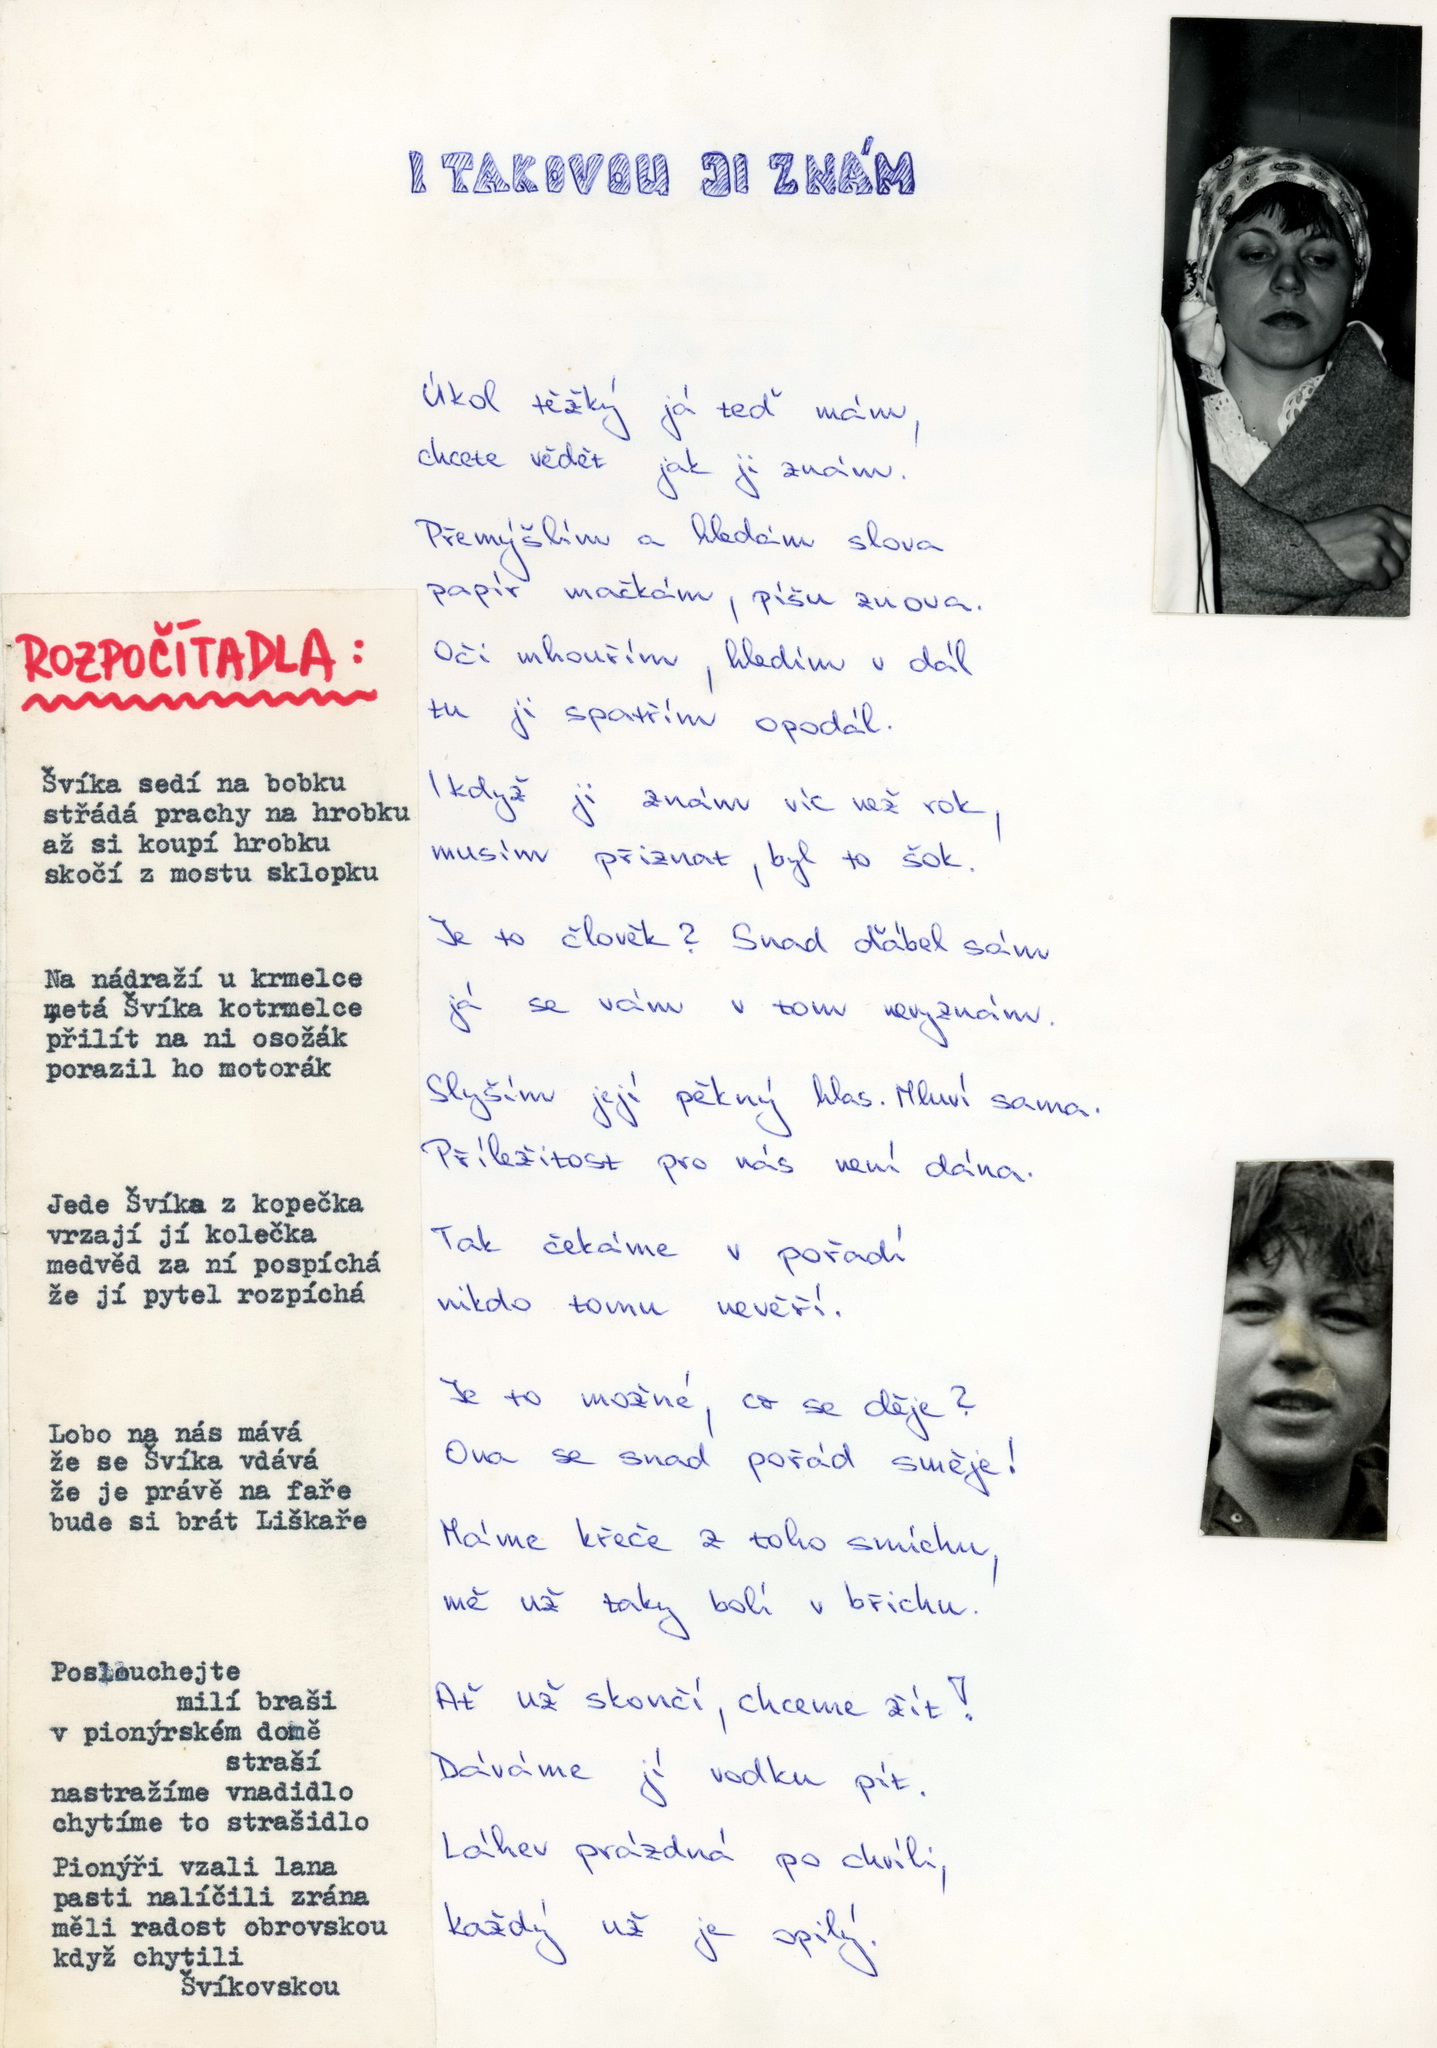 I TAKOVOU JI ZNÁM
Úkol těžký já teď mám,
chcete vědět jak ji znám.
Přemýšlím a hledám slova
papír mačkám, píšu znova.
Oči mhouřím, hledím v dál
tu ji spatřím opodál.
I když ji znám víc než rok,
musím přiznat, byl to šok.
Je to člověk? Snad ďábel sám
já se vám v tom nevyznám.
Slyším její pěkný hlas. Mluví sama.
Příležitost pro nás není dána.
Tak čekáme v pořadí
nikdo tomu nevěří.
Je to možné, co se děje?
Ona se snad pořád směje!
Máme křeče z toho smíchu,
mě už taky bolí v břichu.
Ať už skončí, chceme žít!
Dáváme jí vodku pít.
Láhev prázdná po chvíli,
každý už je opilý.
ROZPOČÍTADLA:
Švíka sedí na bobku
střádá prachy na hrobku
až si koupí hrobku
skočí z mostu sklopku
Na nádraží u krmelce
metá Švíka kotrmelce
přilít na ni osožák
porazil ho motorák
Jede Švíka z kopečka
vrzají jí kolečka
medvěd za ní pospíchá
že jí pytel rozpíchá
Lobo na nás mává
že se Švíka vdává
že je právě na faře
bude si brát Liškaře
Poslouchejte
milí braši
v pionýrském domě
straší
nastražíme vnadidlo
chytíme to strašidlo
Pionýři vzali lana
pasti nalíčili zrána
měli radost obrovskou
když chytili
Švíkovskou